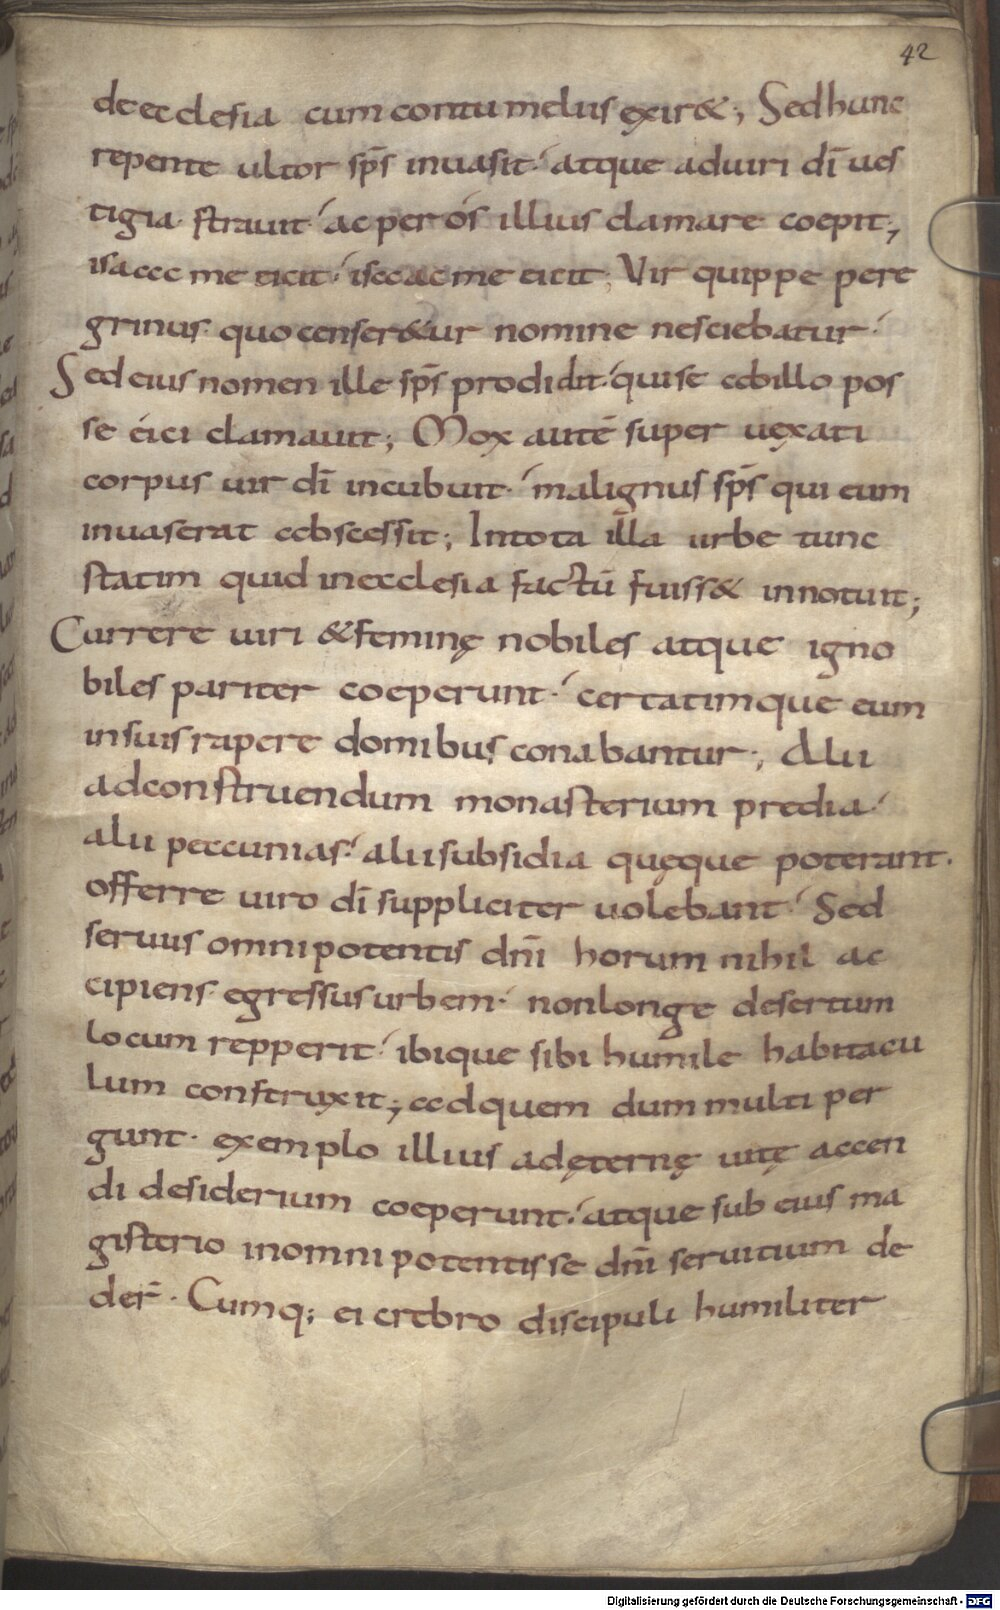 42
de ecclesia cum contumeliis exir&; Sed hunc
repente ultor sps̄ inuasit· atque ad uiri dī ues
tigia· strauit· ac per ós illius clamare coepit;
isaac me eicit· isaac me eicit; Vir quippe pere
grinus· quo censer&ur nomine nesciebatur·
Sed eius nomen ille sps̄ prodidit· qui se ab illo pos
se éici clamauit; Mox autē super uexati
corpus uir dī incubuit· malignus sps̄ qui eum
inuaserat abscessit; In tota illa urbe tunc
statim quid in ecclesia factū fuiss& innotuit;
Currere uiri & feminę nobiles atque igno
biles pariter coeperunt· certatimque eum
in suis rapere domibus conabantur; Alii
ad construendum monasterium predia·
alii peccunias· alii subsidia quęque poterant·
offerre uiro dī suppliciter uolebant· Sed
seruus omnipotentis dnī horum nihil ac
cipiens· egressus urbem· non longe desertum
locum repperit· ibique sibi humile habitacu
lum construxit; ad quem dum multi per
gunt· exemplo illius ad ęternę uitę accen
di desiderium coeperunt· atque sub eius ma
gisterio in omnipotentis se dnī seruitium de
der̄· Cumq; ei crebro discipuli humiliter
Digitalisierung gefördert durch die Deutsche Forschungsgemeinschaft - DFG